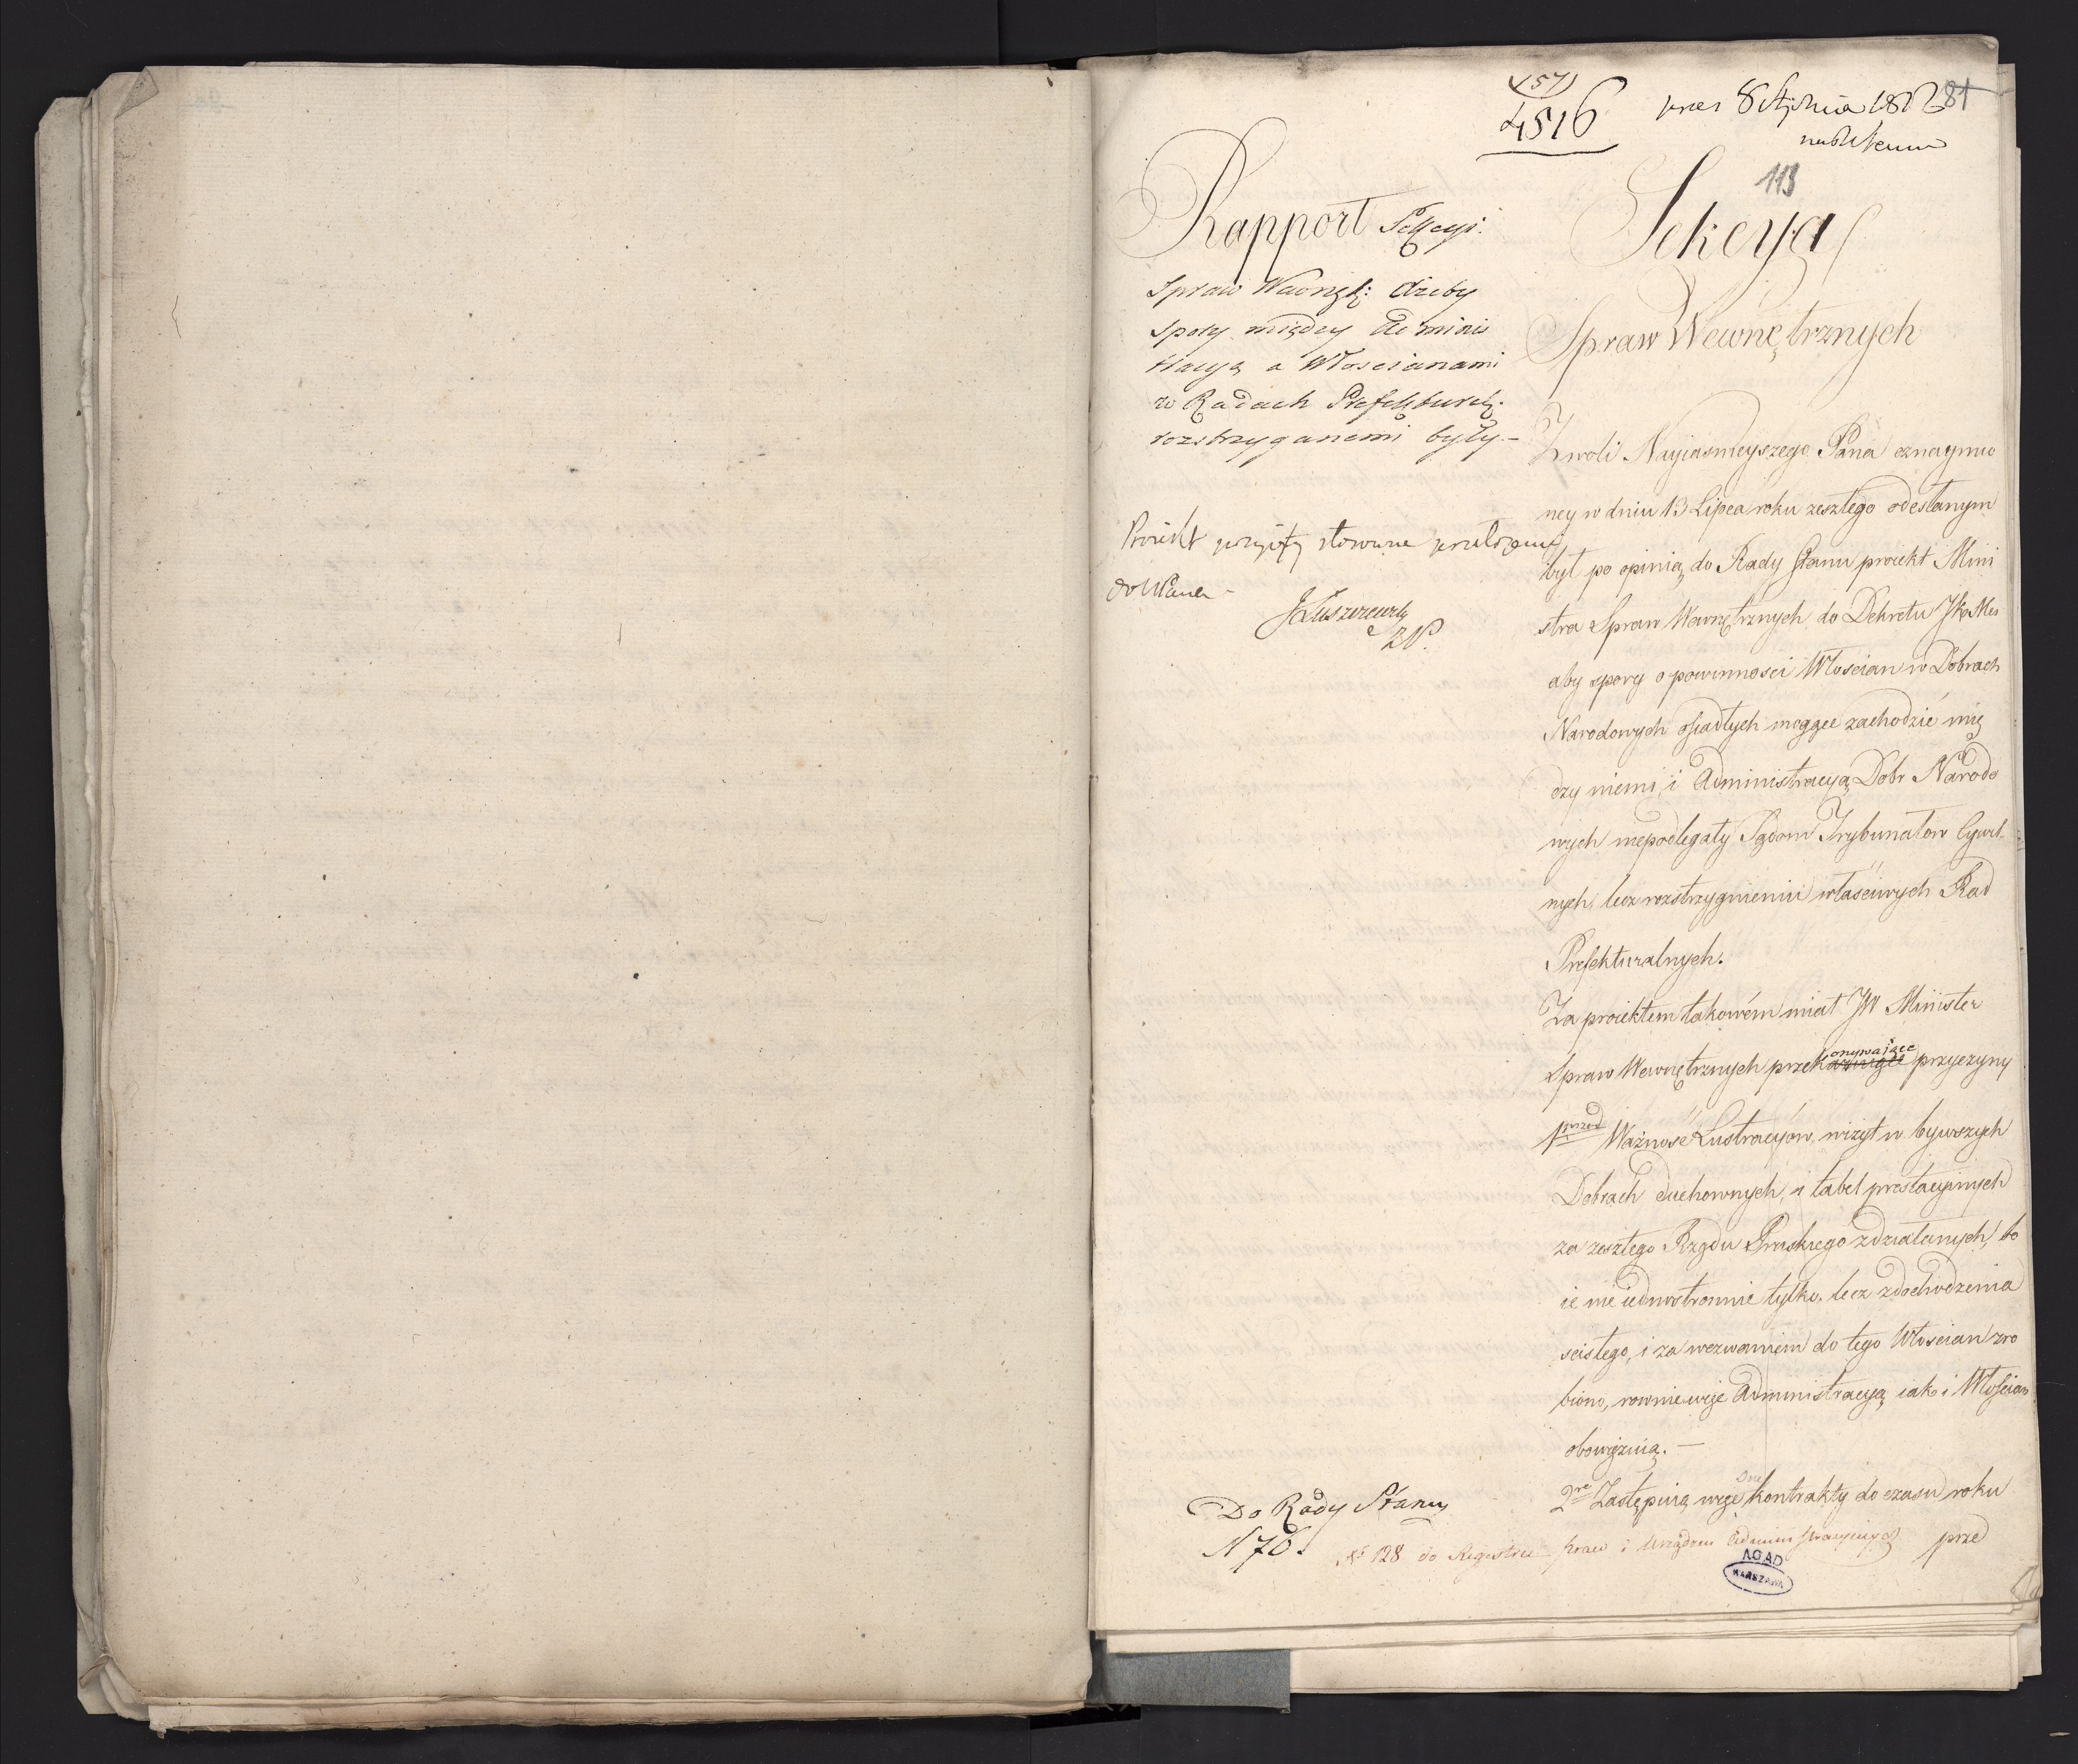 (57)
4516
pres 8 Stycznia 1812
81
113
Rapport Sekcyi
Spraw Wewnętr: ażeby
spory między Adminis
tracyą a Włoscianami
w Radach Prefektural:
rozstrzyganemi były.–
Proiekt przyięty stosowne przełożenie
do NPana –
JŁuszczewsky
Do Rady Stanu
N 70.
Sekcya
Spraw Wewnętrznych
Z woli Nayiasnieyszego Pana oznaymio
ney w dniu 13 Lipca roku zeszłego odesłanym
był po opinią do Rady Stanu proiekt Mini
stra Spraw Wewnętrznych do Dekretu JKMci
aby spory o powinnosci Włoscian w Dobrach
Narodowych osiadłych mogące zachodzić mię
dzy niemi, i Administracyą Dobr Narodo
wych niepodlegały Sądom Trybunałow Cywil-
nych, lecz rozstrzygnieniu właściwych Rad
Prefekturalnych.
Za proiektem takowém miał JW Minister
Spraw Wewnętrznych przekonywaiące przyczyny
1mo Ważność Lustracyów, wizyt w bywszych
Dobrach duchownych, i tabel prestacyinych
za zeszłego Rządu Pruskiego zdziałanych, bo
ie nie iednostronnie tylko, lecz z dochodzenia
scisłego, i za wezwaniem do tego Włoscian zro
biono, rownie więc Administracyą iak i Włościan
obowięzuią. –
2re Zastępuią więc one kontrakty do czasu roku
prze
No 128 do Registru praw i urządzeń Administracyinych
AGAD
WARSZAWA